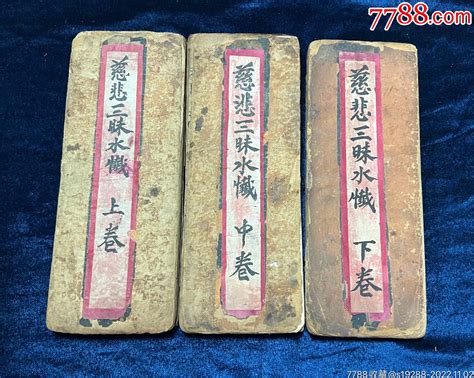 7788.com
慈悲三昧水懺 上卷
慈悲三昧水懺 中卷
慈悲三昧水懺 下卷
7788收藏@s19288-2022.11.02